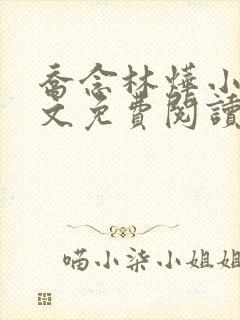 喬念林燁小
文免費閱讀
喵小柒小姐姐